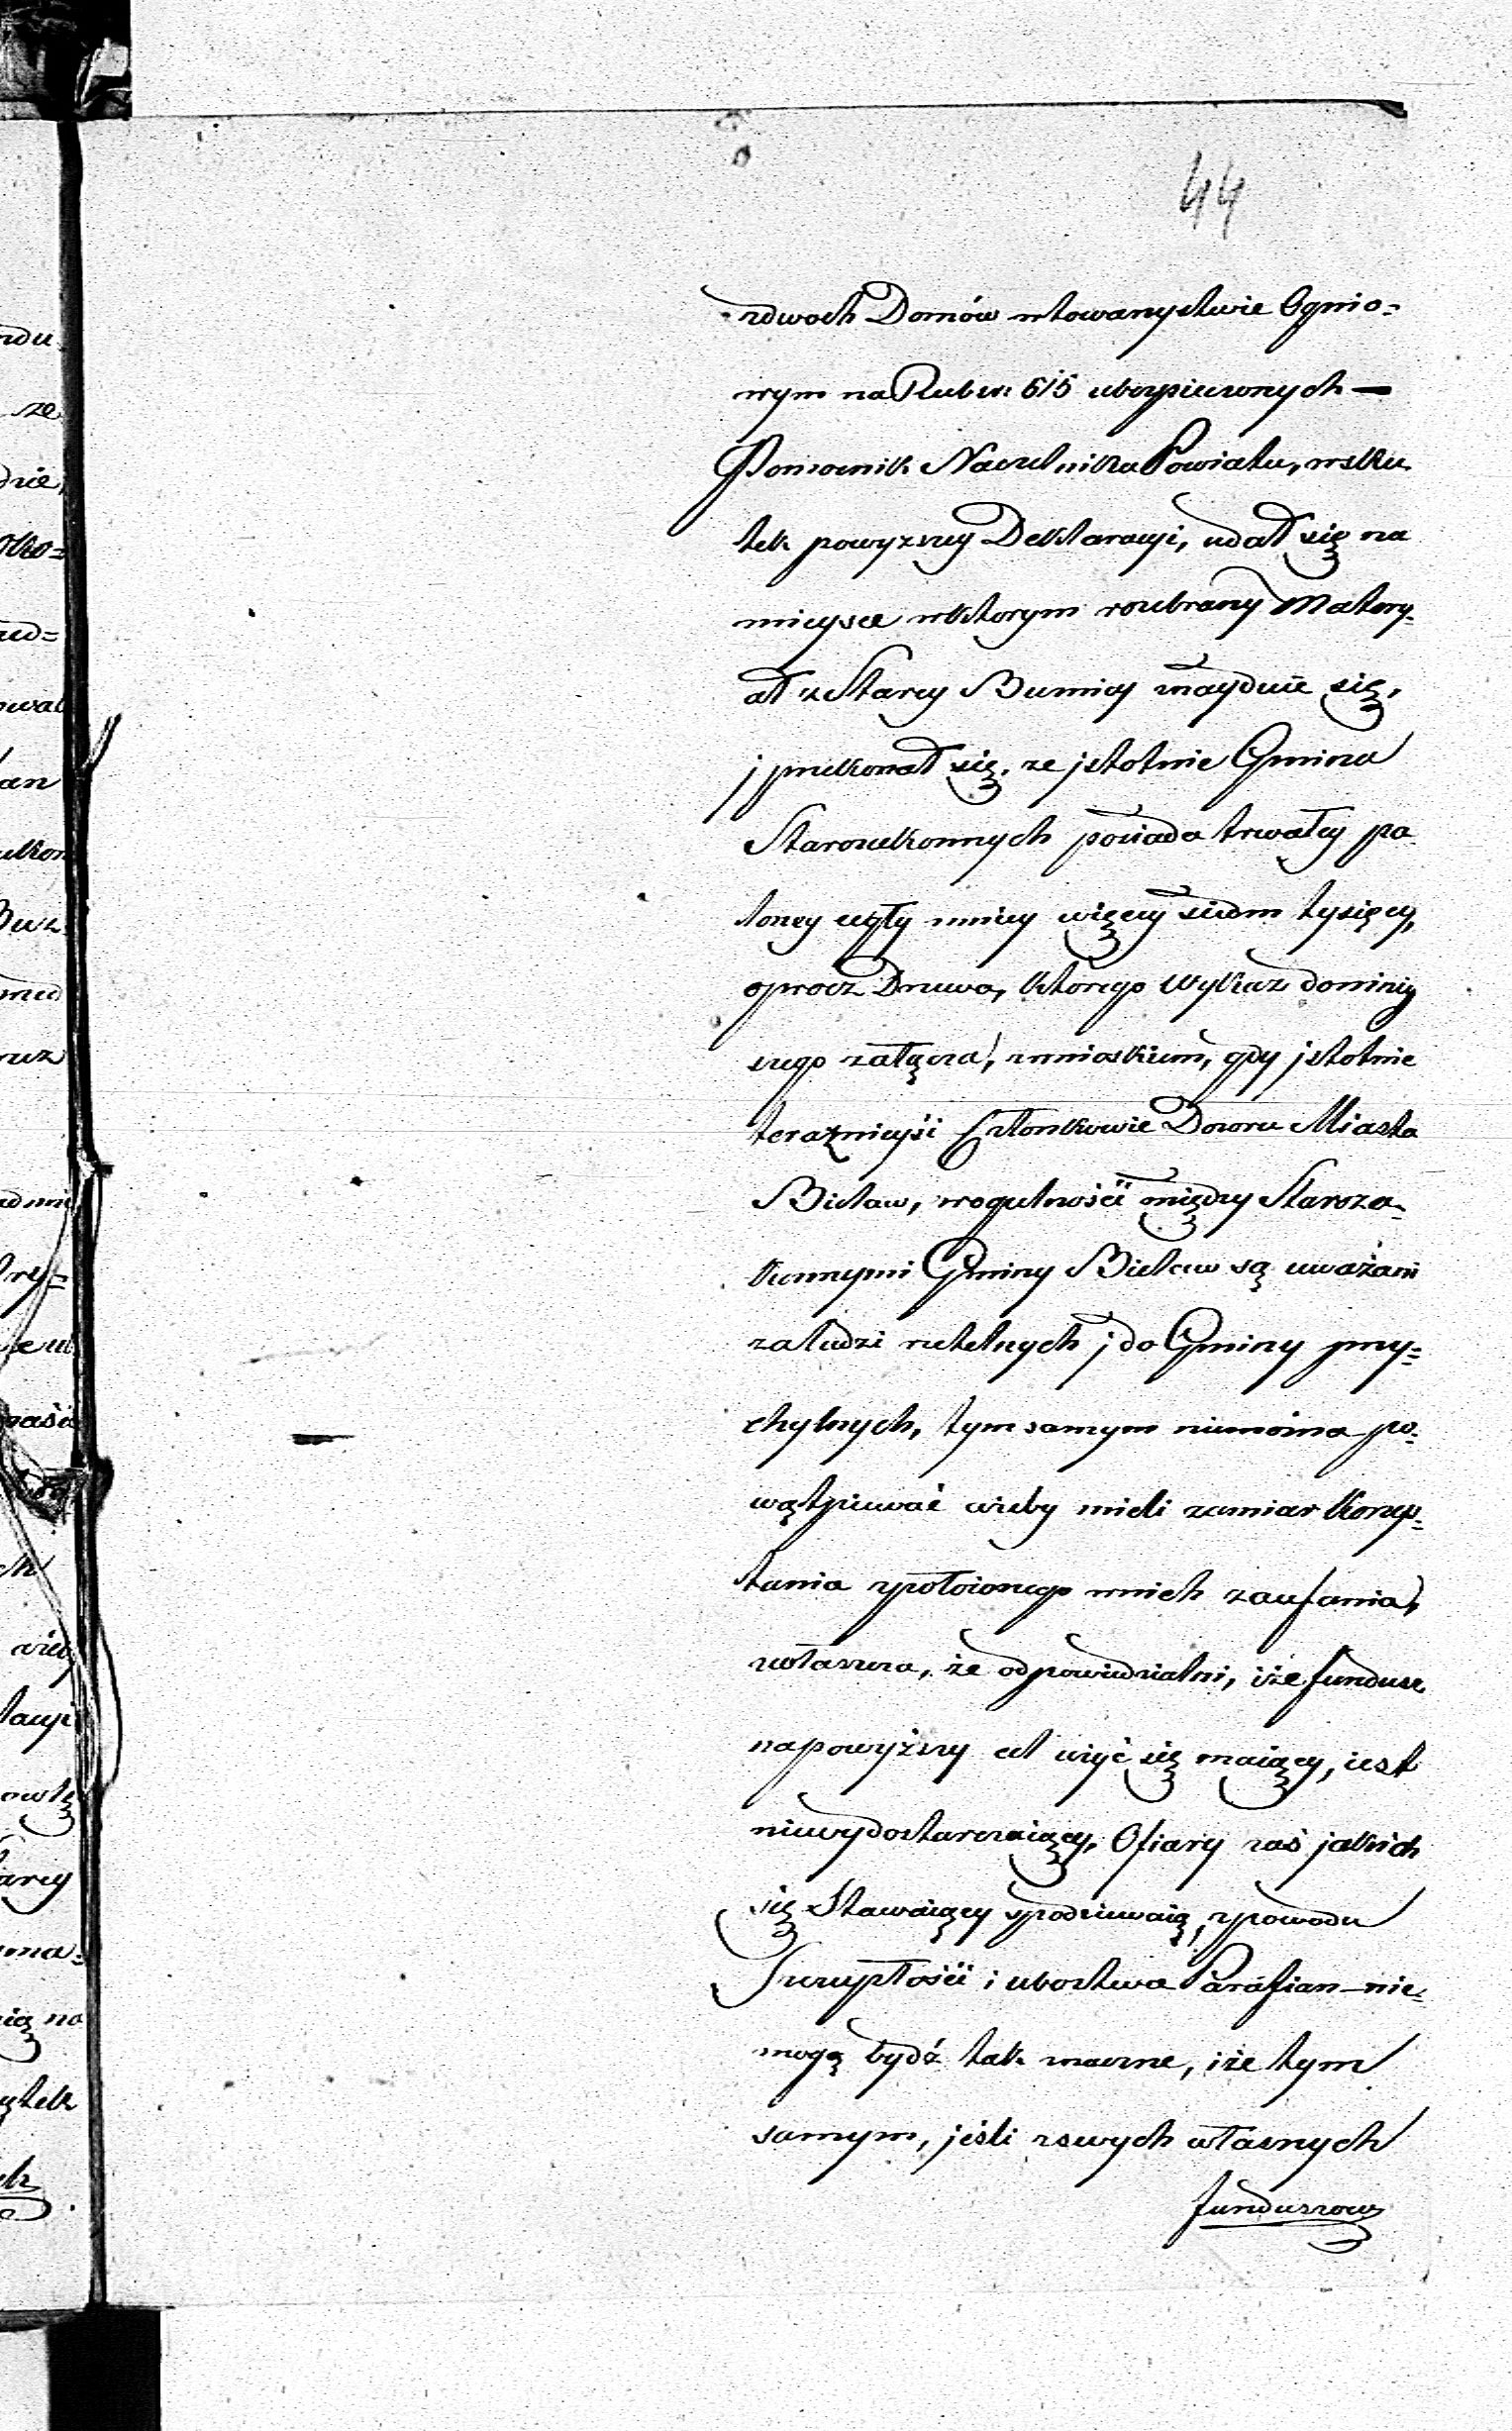 44
zdwoch Domów wtowarzystwie Ognio-
wym na Rubsr: 615 ubezpieczonych —
Pomocnik Naczelnika Powiatu, wsku
tek powyzszey Deklaracyi, udał się na
mieysce wktorym rozebrany Matery-
ał z Starey Buznicy znayduie się,
j przekonał się, ze jstotnie Gmina
Starozakonnych posiada trwałey pa
loney cegły mniey więcey siedm tysięcy,
oprocz Drzewa, którego wykaz doniniey
szego załącza, zwnioskiem, gdy jstotnie
teraznieysi Członkowie Dozoru Miasta
Bielaw, wogulności między Staroza-
konnymi Gminy Bielaw są uważani
zaludzi rzetelnych j do Gminy przy-
chylnych, tym samym niemożna po-
wątpiewać ażeby mieli zamiar korzy-
stania zpołożonego wnich zaufania,
zwłaszcza, że odpowiedzialni, iże fundusz
napowyższy cel użyć się maiący, iest
niewydostarczaiący, Ofiary zaś jakich
się Stawaiący spodziewaią, zpowodu
Szczupłości i ubostwa Parafian – nie-
mogą bydź tak znaczne, iże tym
samym, jeśli zswych własnych
funduszow
ndu
ze
dzie,
wał
ian
Buz
nad
ruz
więc
owlę
tarey
ią na
ątek